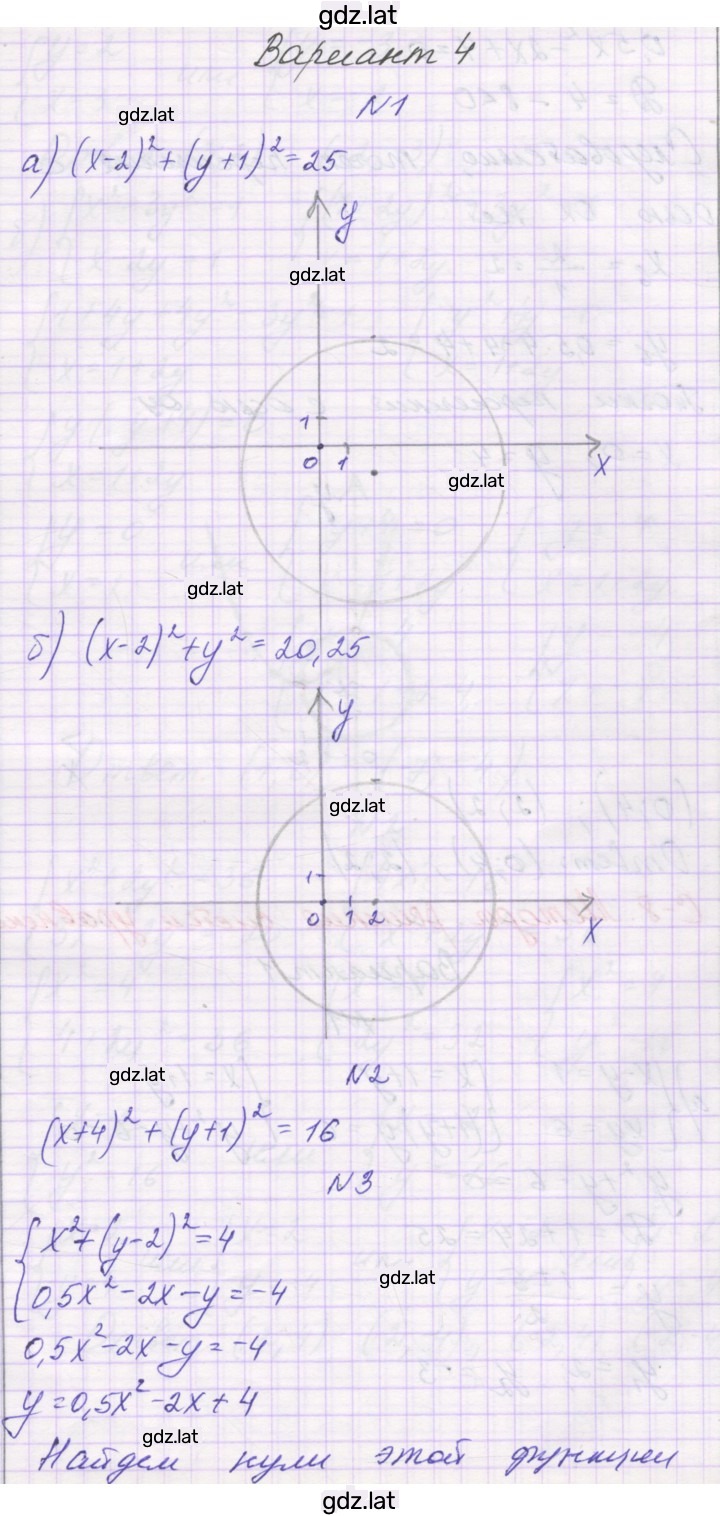 gdz.lat
Вариант 4
gdz.lat
N1
а) (x-2)²+(y+1)²=25
y
gdz.lat
1
0 1
x
gdz.lat
gdz.lat
б) (x-2)²+y²=20,25
y
gdz.lat
1
0 1 2
x
gdz.lat
N2
(x+4)²+(y+1)²=16
N3
{ x²+(y-2)²=4
0,5x²-2x-y=-4
gdz.lat
0,5x²-2x-y=-4
y=0,5x²-2x+4
gdz.lat
Найдем нули этой функции
gdz.lat